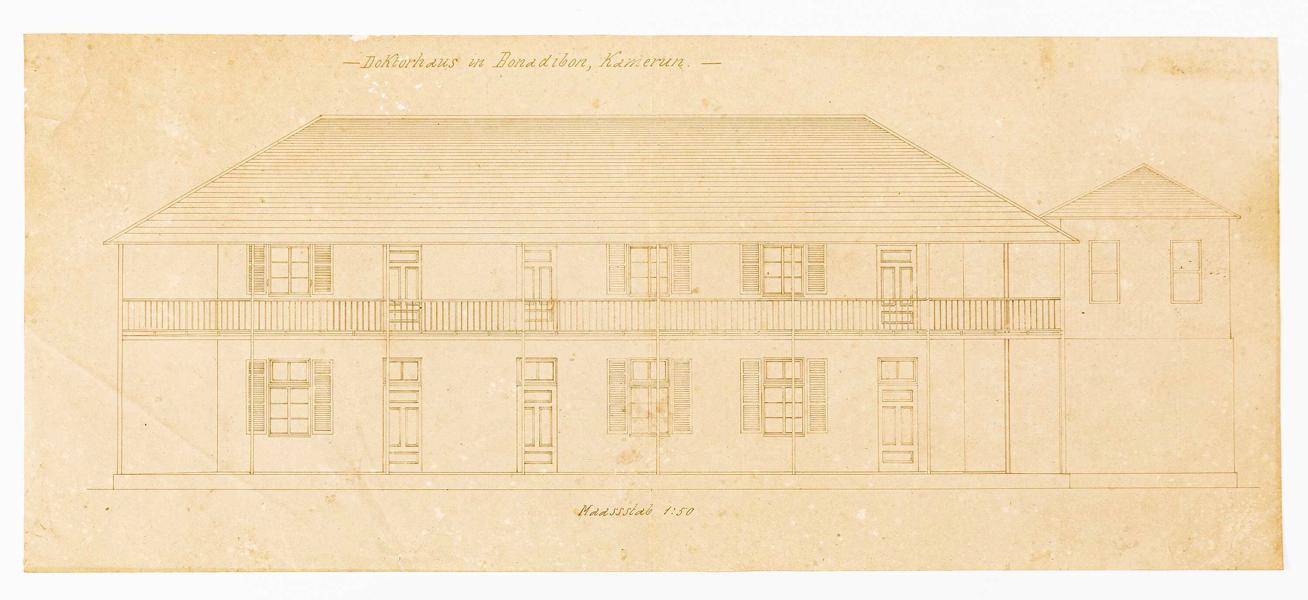 — Doktorhaus in Bonadibon, Kamerun. —
Maassstab 1:50